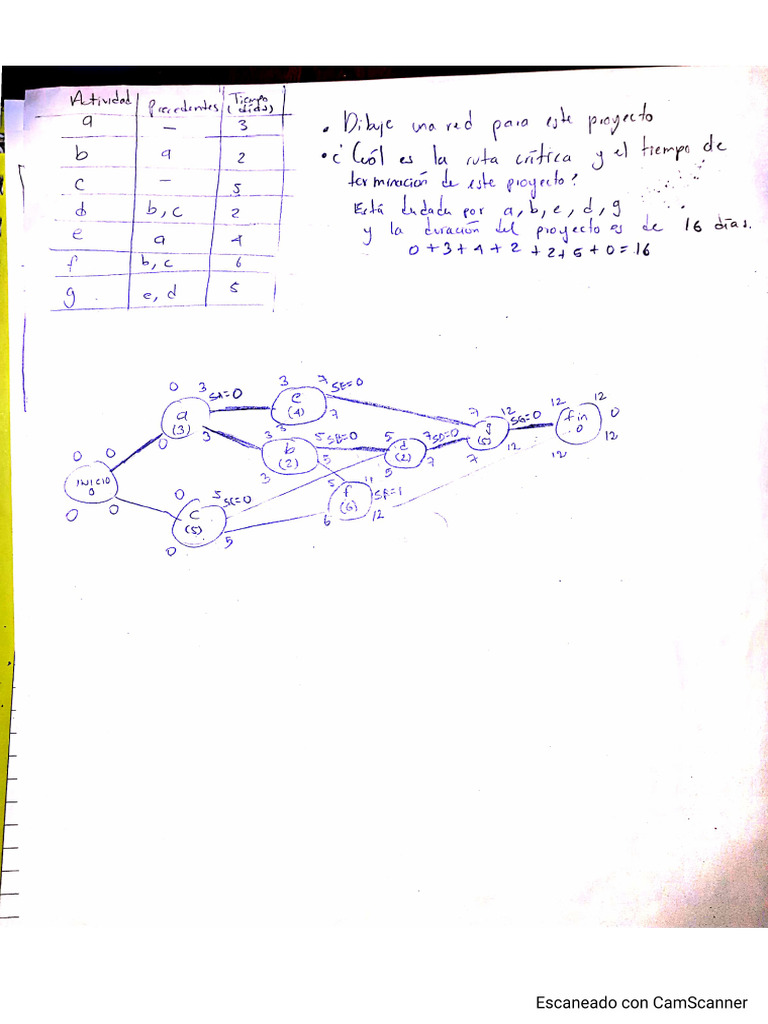 Actividad Precedentes Tiempo (días)
a — 3
b a 2
c — 5
d b, c 2
e a 4
f b, c 6
g e, d 5
• Dibuje una red para este proyecto
• ¿Cuól es la ruta crítica y el tiempo de
terminación de este proyecto?
Está dudada por a, b, e, d, g
y la duración del proyecto es de 16 días.
0 + 3 + 4 + 2 + 2 + 5 + 0 = 16
0 3 SA=0
a
(3)
0 3
3 7 SE=0
e
(4)
7
3 3 5 SB=0
b
(2)
3 5
5 7 SD=0
d
(2)
5 7
7 12 SG=0
g
(5)
7 12
12 12
fin
0
0
12 12
0 0
INICIO
0
0 0
0 5 SC=0
c
(5)
0 5
5 11
f
(6)
SF=1
6 12
Escaneado con CamScanner